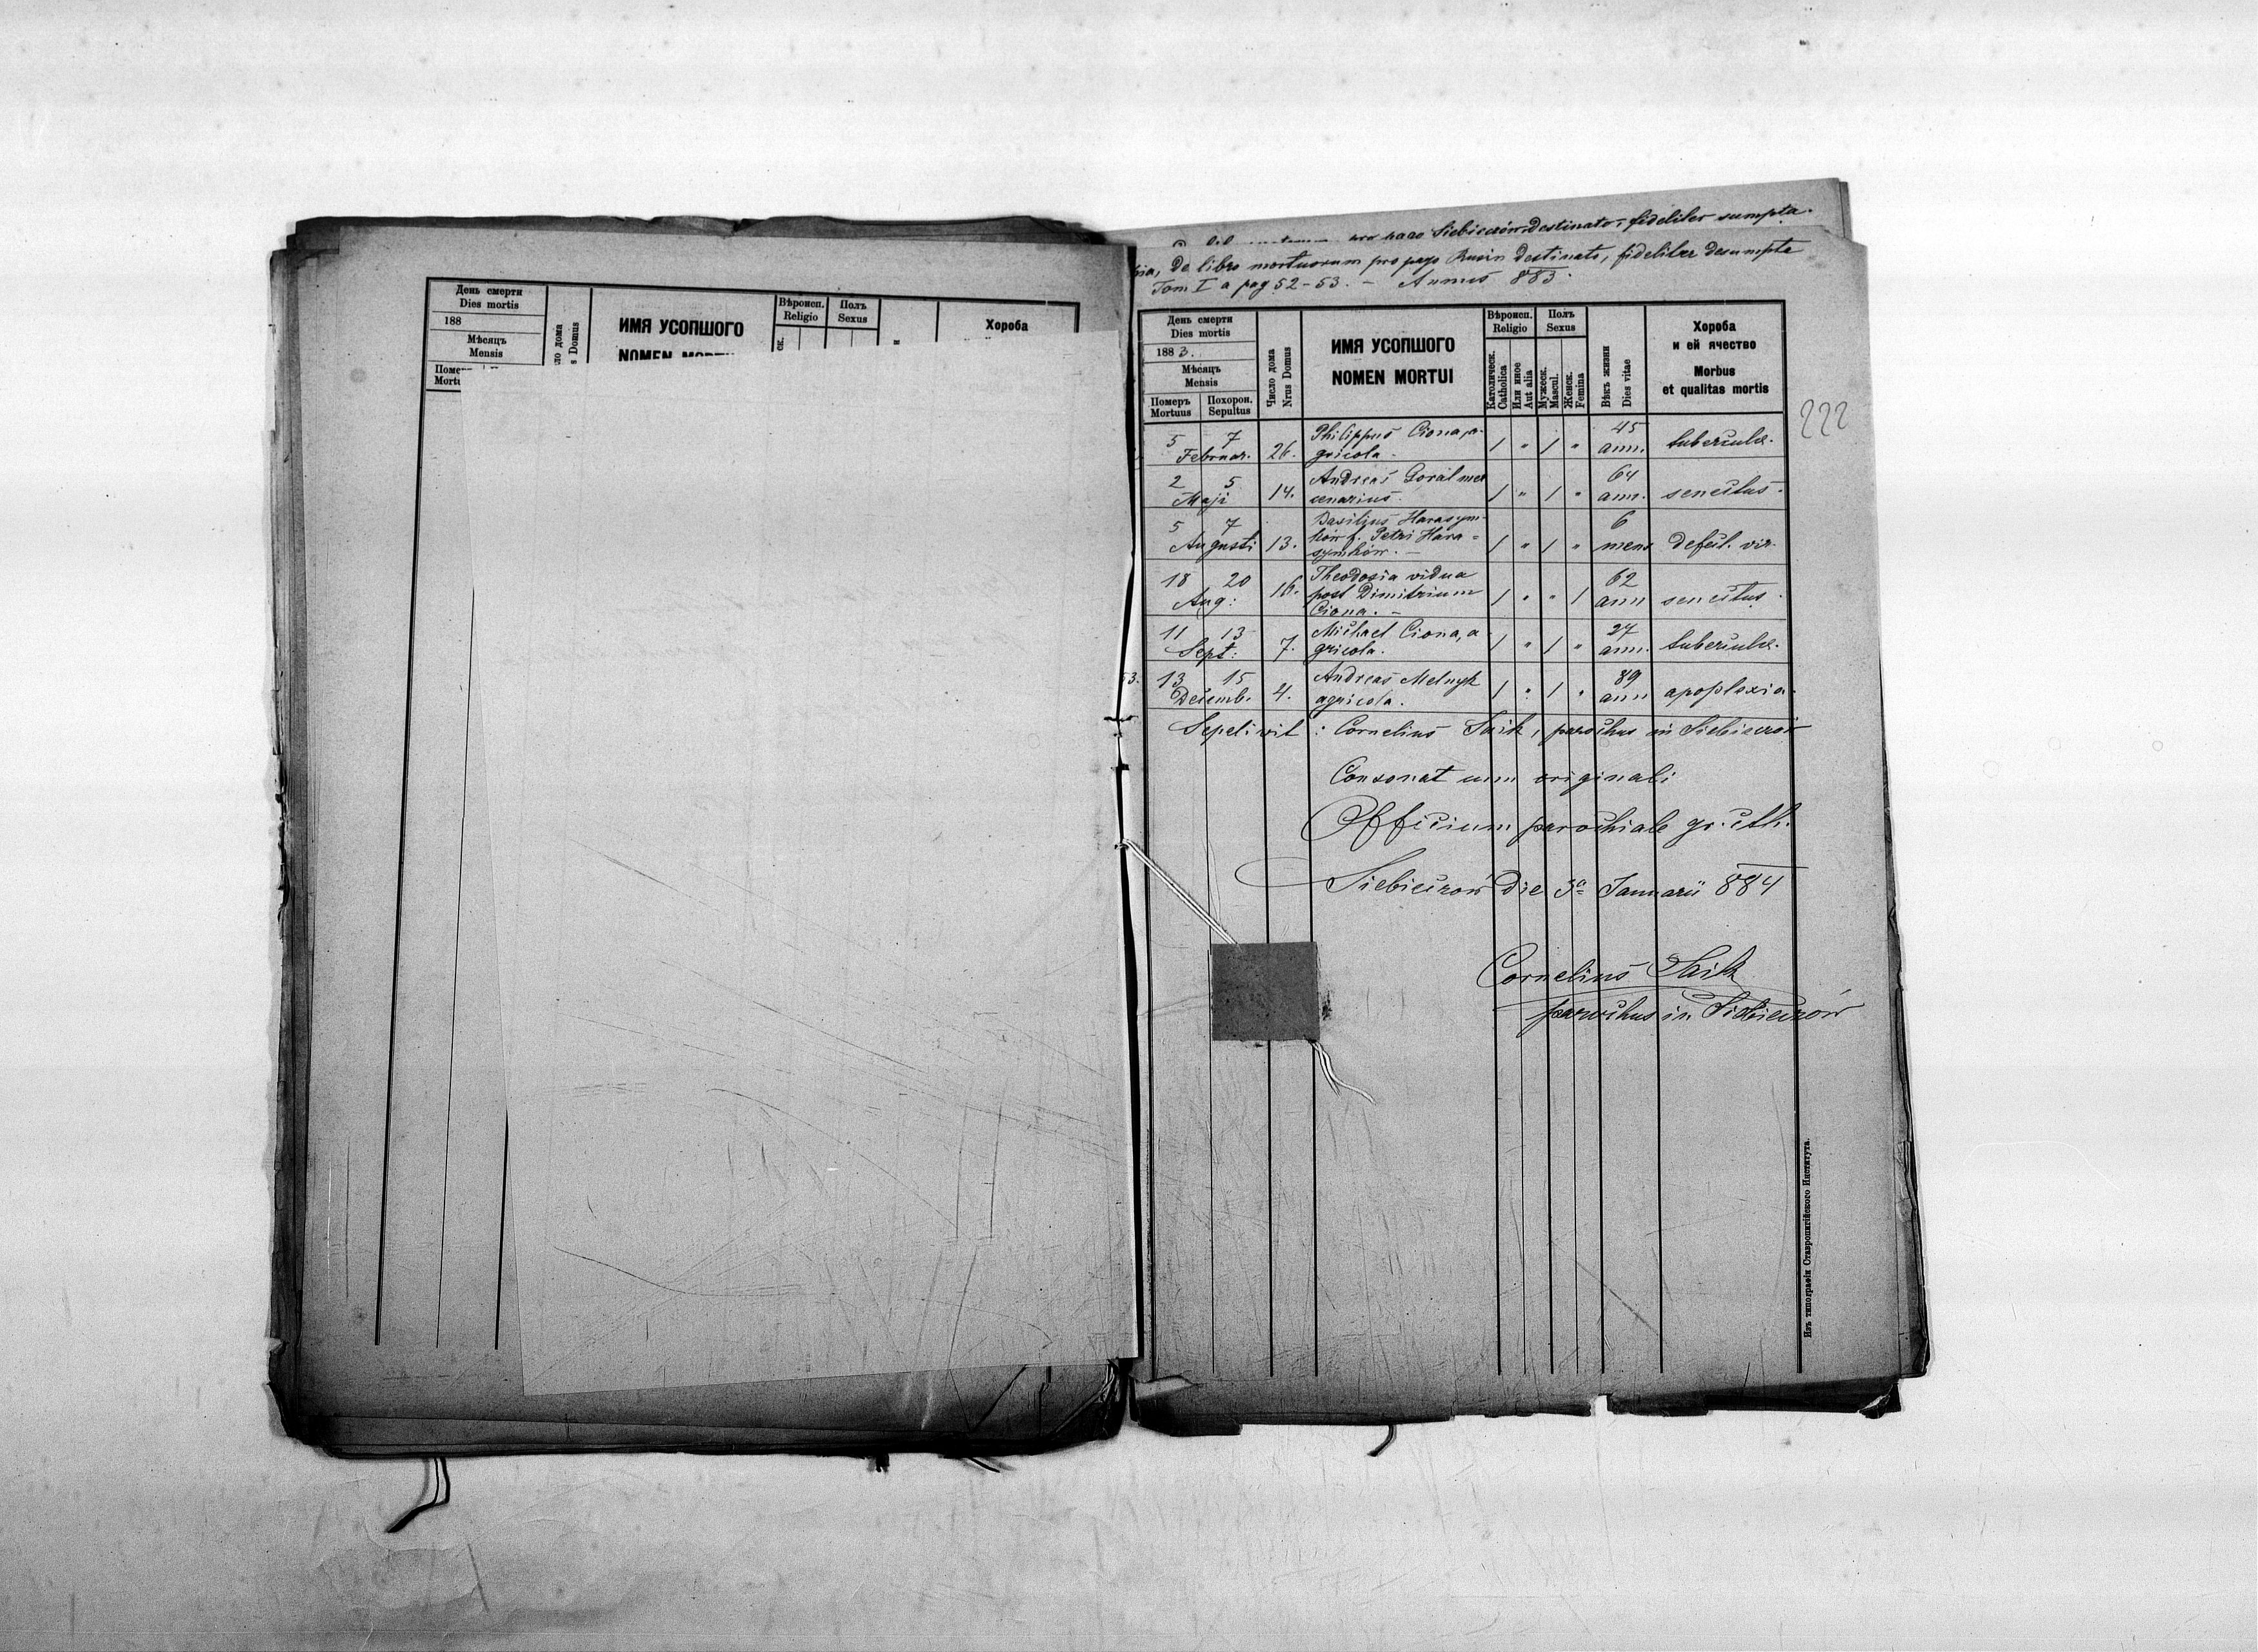 День смерти
Dies mortis
188
Мѣсяцъ
Mensis
ло дома
s Domus
ИМЯ УСОПШОГО
Вѣроисп.
Religio
Полъ
Sexus
Хороба
pro pago Siebieczów destinato, fideliter sumpta.
De libro mortuorum pro pago Rusin destinato, fideliter desumpta
Tom I a pag 52-53. - Annus 883.
День смерти
Dies mortis
1883.
Мѣсяцъ
Mensis
Померъ
Mortuus
Похорон.
Sepultus
Число дома
Nrus Domus
ИМЯ УСОПШОГО
NOMEN MORTUI
Вѣроисп.
Religio
Католическ.
Catholica
Или иное
Aut alia
Полъ
Sexus
Мужеск.
Mascul.
Женск.
Femina
Вѣкъ жизни
Dies vitae
Хороба
и ей ячество
Morbus
et qualitas mortis
222
5 7 Philippus Ciona, a- 45
Februar. 26. gricola. 1 " 1 " ann. tubercula.
2 5 Andreas Goral mer 64
Maji 14. cenarius. 1 " 1 " ann. senectus.
5 7 Basilius Harasym- 6
Augusti 13. ków f. Petri Hara= 1 " 1 " mens defect. vir.
symków. -
18 20 Theodosia vidua 62
Aug: 16. post Dimitrium 1 " " 1 ann senectus.
Ciona. -
11 13 Michael Ciona, a 27
Sept: 7. gricola. 1 " 1 " ann. tubercula.
53. 13 15 Andreas Melnyk 89
Decemb. 4. agricola. 1 " 1 " ann apoplexia.
Sepelivit : Cornelius Saik, parochus in Siebieczów
Consonat cum originali
Officium parochiale gr. cth.
Siebieczów die 3a Januarii 884
Cornelius Saik
parochus in Siebieczów
Изъ типографіи Ставропигійского Института.